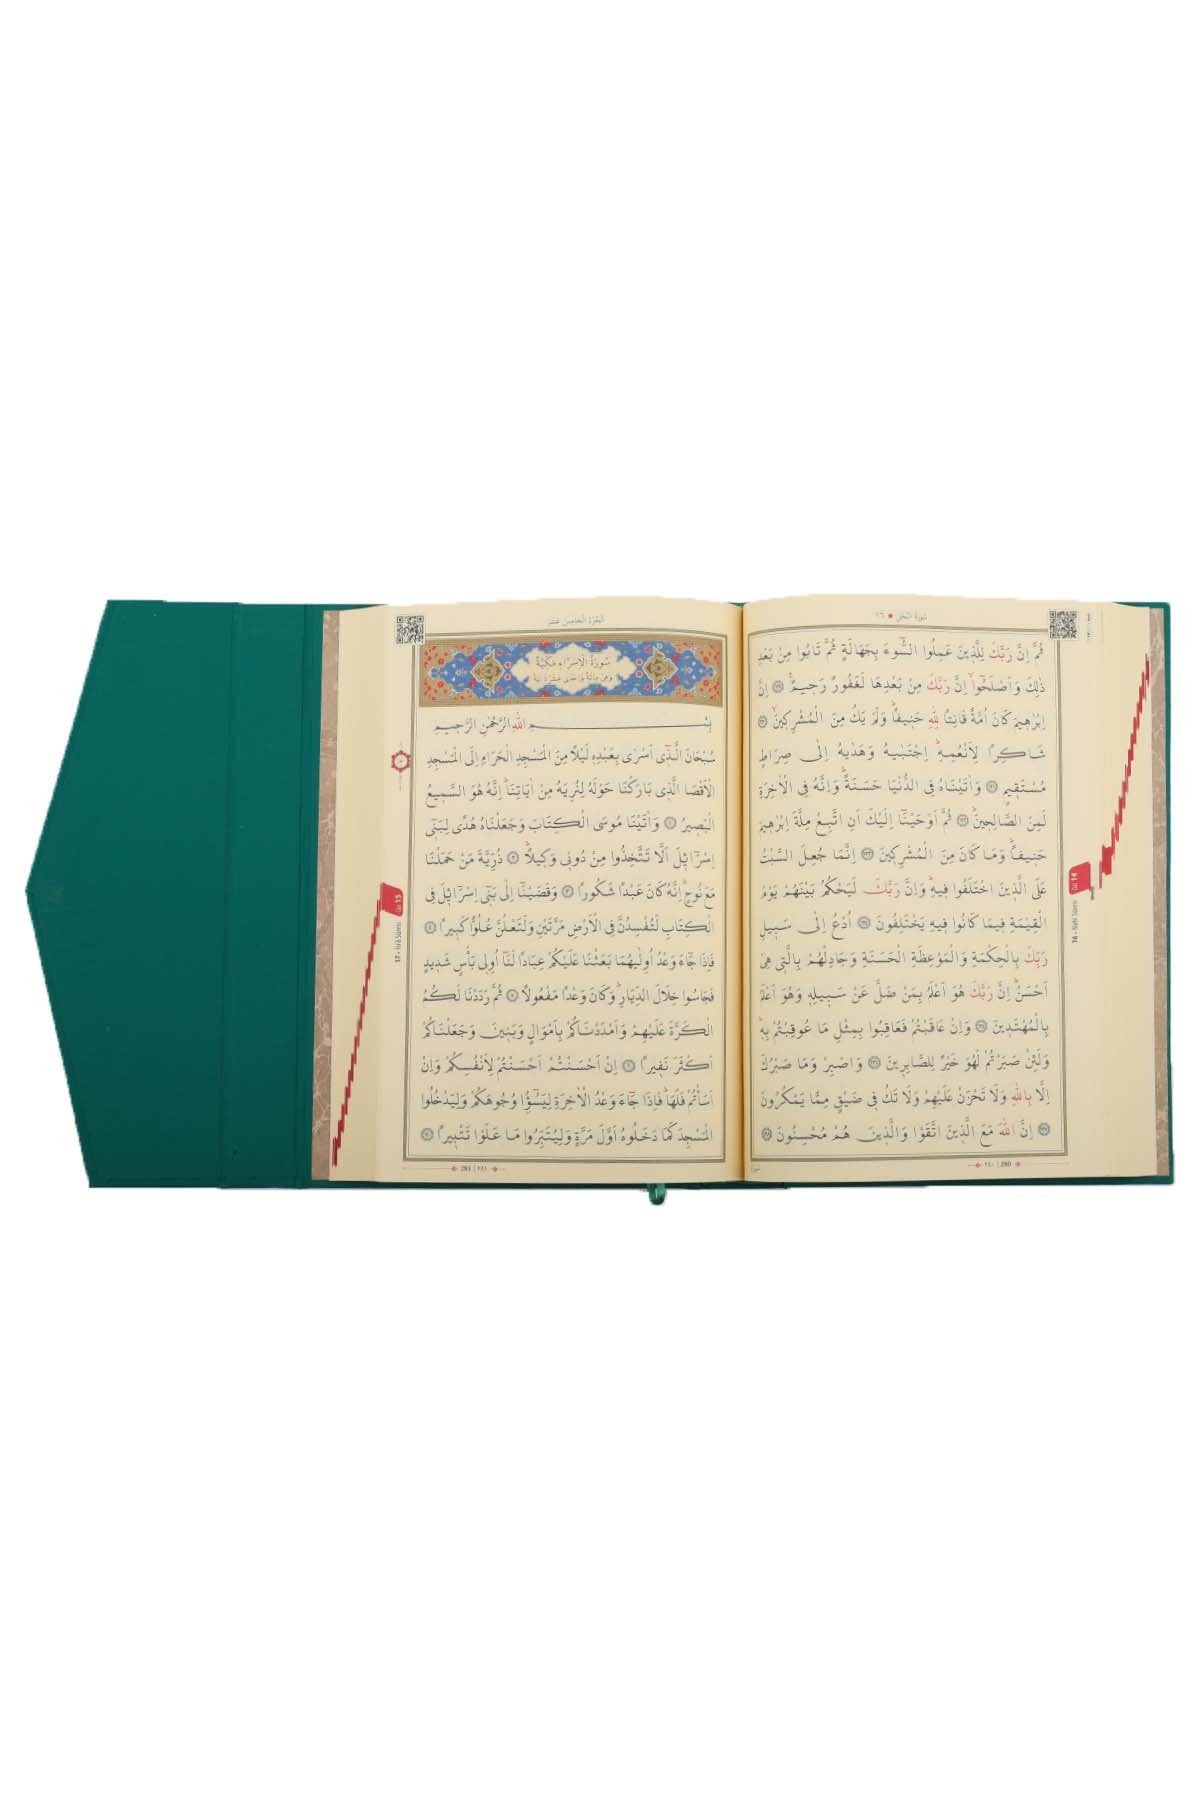 سُورَةُ النَّحْلِ ١٦
ثُمَّ اِنَّ رَبَّكَ لِلَّذٖينَ عَمِلُوا السُّٓوءَ بِجَهَالَةٍ ثُمَّ تَابُوا مِنْ بَعْدِ
ذٰلِكَ وَاَصْلَحُٓوا اِنَّ رَبَّكَ مِنْ بَعْدِهَا لَغَفُورٌ رَحٖيمٌ ﴿١١٩﴾ اِنَّ
اِبْرٰهٖيمَ كَانَ اُمَّةً قَانِتاً لِلّٰهِ حَنٖيفاً وَلَمْ يَكُ مِنَ الْمُشْرِكٖينَ ﴿١٢٠﴾
شَاكِراً لِاَنْعُمِهٖ اِجْتَبٰيهُ وَهَدٰيهُ اِلٰى صِرَاطٍ
مُسْتَقٖيمٍ ﴿١٢١﴾ وَاٰتَيْنَاهُ فِى الدُّنْيَا حَسَنَةً وَاِنَّهُ فِى الْاٰخِرَةِ
لَمِنَ الصَّالِحٖينَ ﴿١٢٢﴾ ثُمَّ اَوْحَيْنَٓا اِلَيْكَ اَنِ اتَّبِعْ مِلَّةَ اِبْرٰهٖيمَ
حَنٖيفاً وَمَا كَانَ مِنَ الْمُشْرِكٖينَ ﴿١٢٣﴾ اِنَّمَا جُعِلَ السَّبْتُ
عَلَى الَّذٖينَ اخْتَلَفُوا فٖيهِ وَاِنَّ رَبَّكَ لَيَحْكُمُ بَيْنَهُمْ يَوْمَ
الْقِيٰمَةِ فٖيمَا كَانُوا فٖيهِ يَخْتَلِفُونَ ﴿١٢٤﴾ اُدْعُ اِلٰى سَبٖيلِ
رَبِّكَ بِالْحِكْمَةِ وَالْمَوْعِظَةِ الْحَسَنَةِ وَجَادِلْهُمْ بِالَّتٖى هِىَ
اَحْسَنُ اِنَّ رَبَّكَ هُوَ اَعْلَمُ بِمَنْ ضَلَّ عَنْ سَبٖيلِهٖ وَهُوَ اَعْلَمُ
بِالْمُهْتَدٖينَ ﴿١٢٥﴾ وَاِنْ عَاقَبْتُمْ فَعَاقِبُوا بِمِثْلِ مَا عُوقِبْتُمْ بِهٖ
وَلَئِنْ صَبَرْتُمْ لَهُوَ خَيْرٌ لِلصَّابِرٖينَ ﴿١٢٦﴾ وَاصْبِرْ وَمَا صَبْرُكَ
اِلَّا بِاللّٰهِ وَلَا تَحْزَنْ عَلَيْهِمْ وَلَا تَكُ فٖى ضَيْقٍ مِمَّا يَمْكُرُونَ
﴿١٢٧﴾ اِنَّ اللّٰهَ مَعَ الَّذٖينَ اتَّقَوْا وَالَّذٖينَ هُمْ مُحْسِنُونَ ﴿١٢٨﴾
٢٨٠ | 280
Cüz 14
16 - Nahl Sûresi
اَلْجُزْءُ الْخَامِسَ عَشَرَ
سُورَةُ الْاِسْرَاءِ مَكِّيَّةٌ
وَهِىَ مِائَةٌ وَاِحْدٰى عَشْرَةَ اٰيَةً
بِسْمِ اللّٰهِ الرَّحْمٰنِ الرَّحٖيمِ
سُبْحَانَ الَّذٖٓى اَسْرٰى بِعَبْدِهٖ لَيْلاً مِنَ الْمَسْجِدِ الْحَرَامِ اِلَى الْمَسْجِدِ
الْاَقْصَا الَّذٖى بَارَكْنَا حَوْلَهُ لِنُرِيَهُ مِنْ اٰيَاتِنَا اِنَّهُ هُوَ السَّمٖيعُ
الْبَصٖيرُ ﴿١﴾ وَاٰتَيْنَا مُوسَى الْكِتَابَ وَجَعَلْنَاهُ هُدًى لِبَنٖٓى
اِسْرَٓائٖلَ اَلَّا تَتَّخِذُوا مِنْ دُونٖى وَكٖيلاً ﴿٢﴾ ذُرِّيَّةَ مَنْ حَمَلْنَا
مَعَ نُوحٍ اِنَّهُ كَانَ عَبْداً شَكُوراً ﴿٣﴾ وَقَضَيْنَٓا اِلٰى بَنٖٓى اِسْرَٓائٖلَ فِى
الْكِتَابِ لَتُفْسِدُنَّ فِى الْاَرْضِ مَرَّتَيْنِ وَلَتَعْلُنَّ عُلُوًّا كَبٖيراً ﴿٤﴾
فَاِذَا جَٓاءَ وَعْدُ اُولٰيهُمَا بَعَثْنَا عَلَيْكُمْ عِبَاداً لَنَٓا اُولٖى بَأْسٍ شَدٖيدٍ
فَجَاسُوا خِلَالَ الدِّيَارِ وَكَانَ وَعْداً مَفْعُولاً ﴿٥﴾ ثُمَّ رَدَدْنَا لَكُمُ
الْكَرَّةَ عَلَيْهِمْ وَاَمْدَدْنَاكُمْ بِاَمْوَالٍ وَبَنٖينَ وَجَعَلْنَاكُمْ
اَكْثَرَ نَفٖيراً ﴿٦﴾ اِنْ اَحْسَنْتُمْ اَحْسَنْتُمْ لِاَنْفُسِكُمْ وَاِنْ
اَسَأْتُمْ فَلَهَا فَاِذَا جَٓاءَ وَعْدُ الْاٰخِرَةِ لِيَسُٓؤُا وُجُوهَكُمْ وَلِيَدْخُلُوا
الْمَسْجِدَ كَمَا دَخَلُوهُ اَوَّلَ مَرَّةٍ وَلِيُتَبِّرُوا مَا عَلَوْا تَتْبٖيراً ﴿٧﴾
٢٨١ | 281
Cüz 15
17 - İsrâ Sûresi